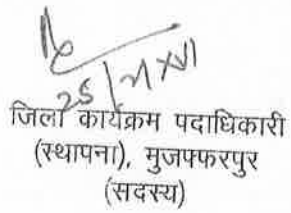 जिला कार्यक्रम पदाधिकारी
(स्थापना), मुजफ्फरपुर
(सदस्य)